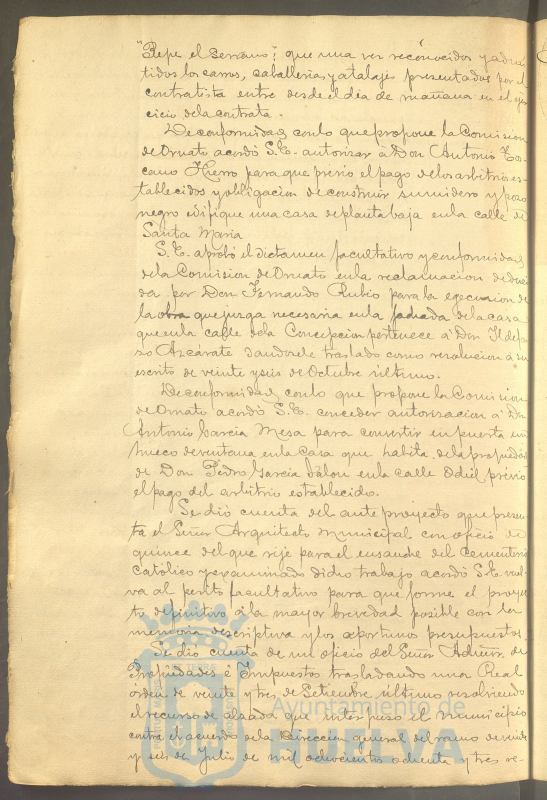 "Pepe el Serrano"; que una vez reconocidos y admi
tidos los carros, caballerias y atalajes presentados por el
contratista entre desde el dia de mañana en el ejer
cicio de la contrata.
De conformidad con lo que propone la Comision
de Ornato acordó S.E. autorizar á Don Antonio Tos
cano Hierro para que previo el pago de los arbitrios es
tablecidos y obligacion de construir sumidero y pozo
negro edifique una casa de planta baja en la calle de
Santa Maria
S.E. aprobó el dictamen facultativo y conformidad
de la Comision de Ornato en la reclamacion deduci
da por Don Fernando Rubio para la egecucion de
la obra que juzga necesaria en la fachada de la casa
que en la calle de la Concepcion pertenece á Don Ildefon
so Azcárate dandosele traslado como resolucion á su
escrito de veinte y seis de Octubre último.
De conformidad con lo que propone la Comision
de Ornato acordó S.E. conceder autorizacion á Don
Antonio Garcia Mesa para convertir en puerta un
hueco de ventana en la casa que habita de la propiedad
de Don Pedro Garcia Jalon en la calle Odiel, previo
el pago del arbitrio establecido.
Se dió cuenta del ante proyecto que presen
ta el Señor Arquitecto Municipal con oficio de
quince del que rije para el ensanche del Cementerio
Católico y examinado dicho trabajo acordó S.E. vuel
va al perito facultativo para que forme el proyec
to definitivo á la mayor brevedad posible con la
memoria descriptiva y los oportunos presupuestos.
Se dió cuenta de un oficio del Señor Admor. de
Propiedades é Impuestos trasladando una Real
órden de veinte y tres de Setiembre último resolviendo
el recurso de alzada que interpuso el Municipio
contra el acuerdo de la Direccion general del ramo de veinte
y seis de Julio de mil ochocientos ochenta y tres re-
Ayuntamiento de
HUELVA